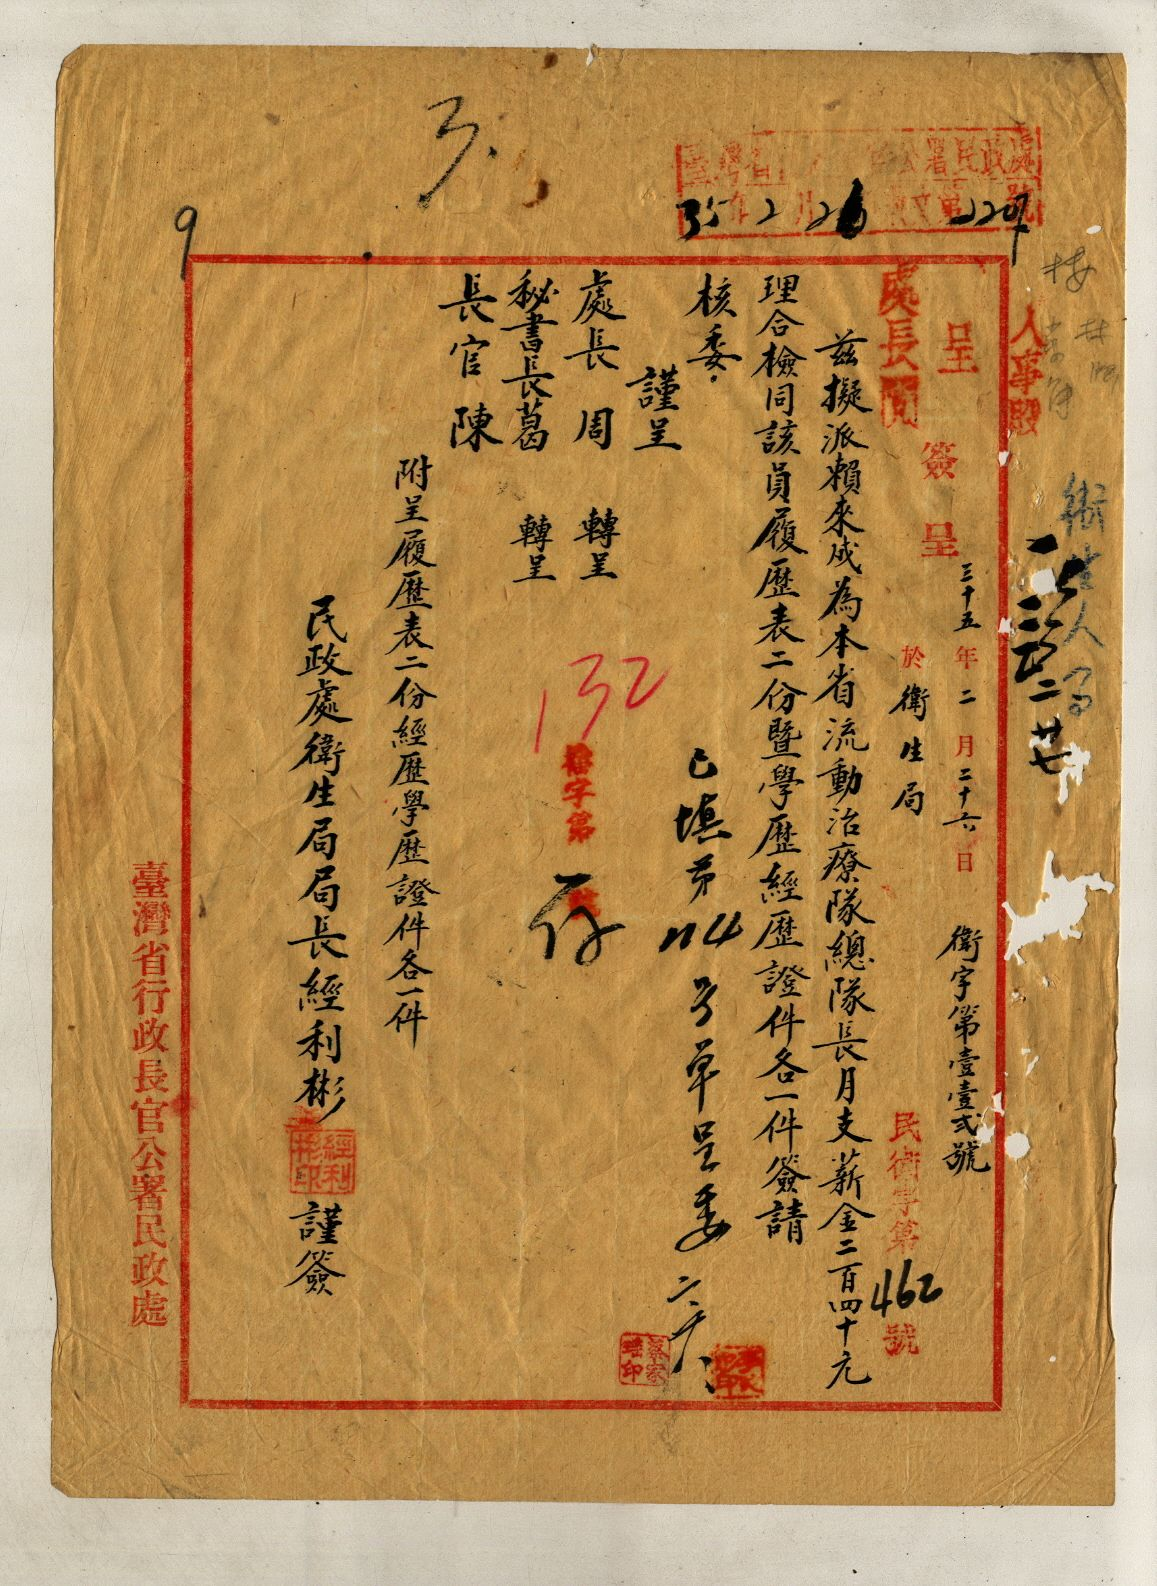 人事股
呈
簽呈
三十五年二月二十六日
衛字第壹壹弍號
處長周
於衛生局
民衛字第462號
茲擬派賴來成為本省流動治療隊總隊長月支薪金二百四十元
理合檢同該員履歷表二份暨學歷經歷證件各一件簽請
核委.
謹呈
處長周 轉呈
秘書長葛 轉呈
長官陳
附呈履歷表二份經歷學歷證件各一件
民政處衛生局局長經利彬
經利彬印
謹簽
已填第114號單呈委
132
存
臺灣省行政長官公署民政處
35 2 26
9